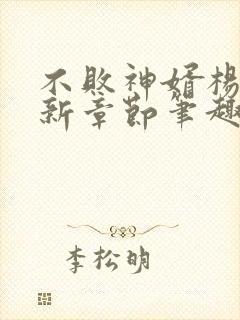 不败神婿杨
新章节笔趣
李松明